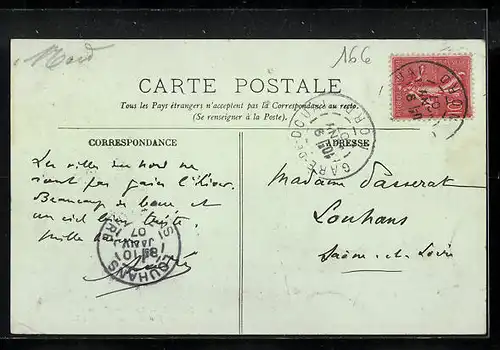 Nord
166
CARTE POSTALE
Tous les Pays étrangers n'acceptent pas la Correspondance au recto.
(Se renseigner à la Poste).
CORRESPONDANCE
ADRESSE
Les villes du nord ne
sont pas gaies l'hiver.
Beaucoup de boue et
un ciel bien triste.
Mille
Madame Passerat
Louhans
Saône-et-Loire
GARE-DE-DOUAI
NORD
LOUHANS
10
JANV
07